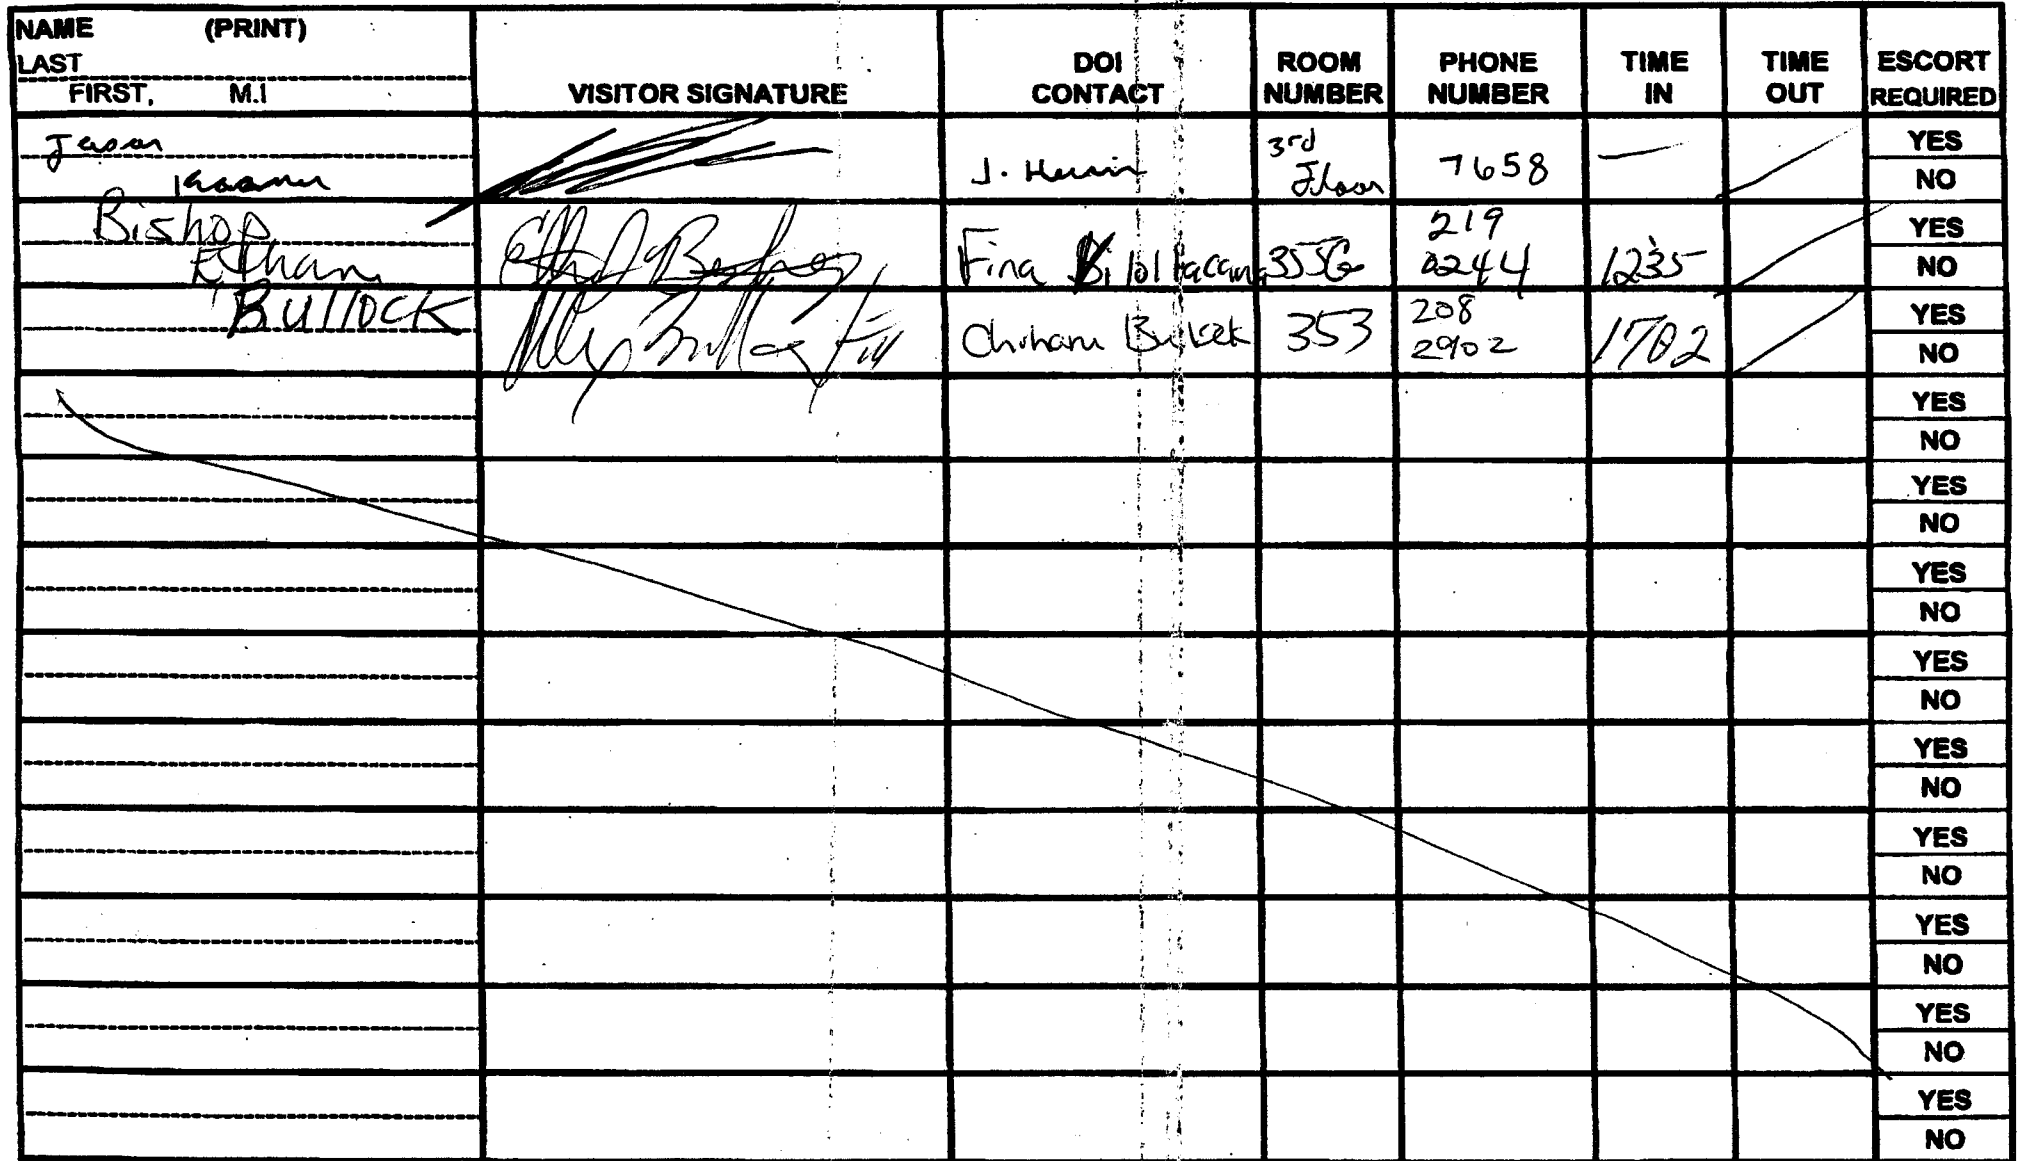 NAME (PRINT)
LAST
FIRST, M.I
VISITOR SIGNATURE
DOI
CONTACT
ROOM
NUMBER
PHONE
NUMBER
TIME
IN
TIME
OUT
ESCORT
REQUIRED
Jason
J.
3rd
Floor
7658
YES
NO
Bishop
Ethan
Fina
355G
219
0244
1235
YES
NO
BUllOCK
353
208
2902
1702
YES
NO
YES
NO
YES
NO
YES
NO
YES
NO
YES
NO
YES
NO
YES
NO
YES
NO
YES
NO